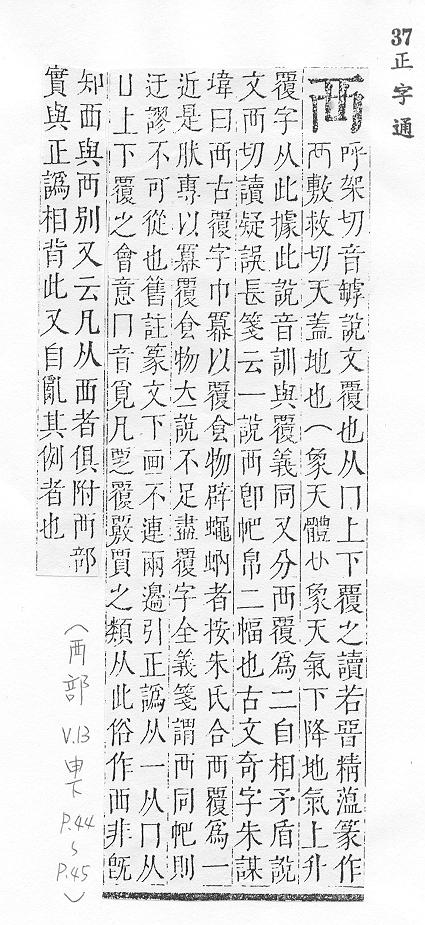 37 正字通
襾
呼架切音罅說文覆也从冂上下覆之讀若晋精薀篆作
襾敷救切天蓋地也⼍象天體𠀎象天氣下降地氣上升
覆字从此據此說音訓與覆義同又分襾覆爲二自相矛盾說
文襾切讀疑誤長箋云一說襾卽帊帛二幅也古文奇字朱謀
㙔曰襾古覆字巾冪以覆食物辟蠅蚋者按朱氏合襾覆爲一
近是肰專以冪覆食物大說不足盡覆字全義箋謂襾同帊則
迂謬不可從也舊註篆文下畫不連兩邊引正譌从一从冂从
凵上下覆之會意冂音覓凡覂覆覈賈之類从此俗作西非旣
知西與襾別又云凡从西者俱附襾部
實與正譌相背此又自亂其例者也
(襾部 V.13 申下 P.44 ~ P.45)